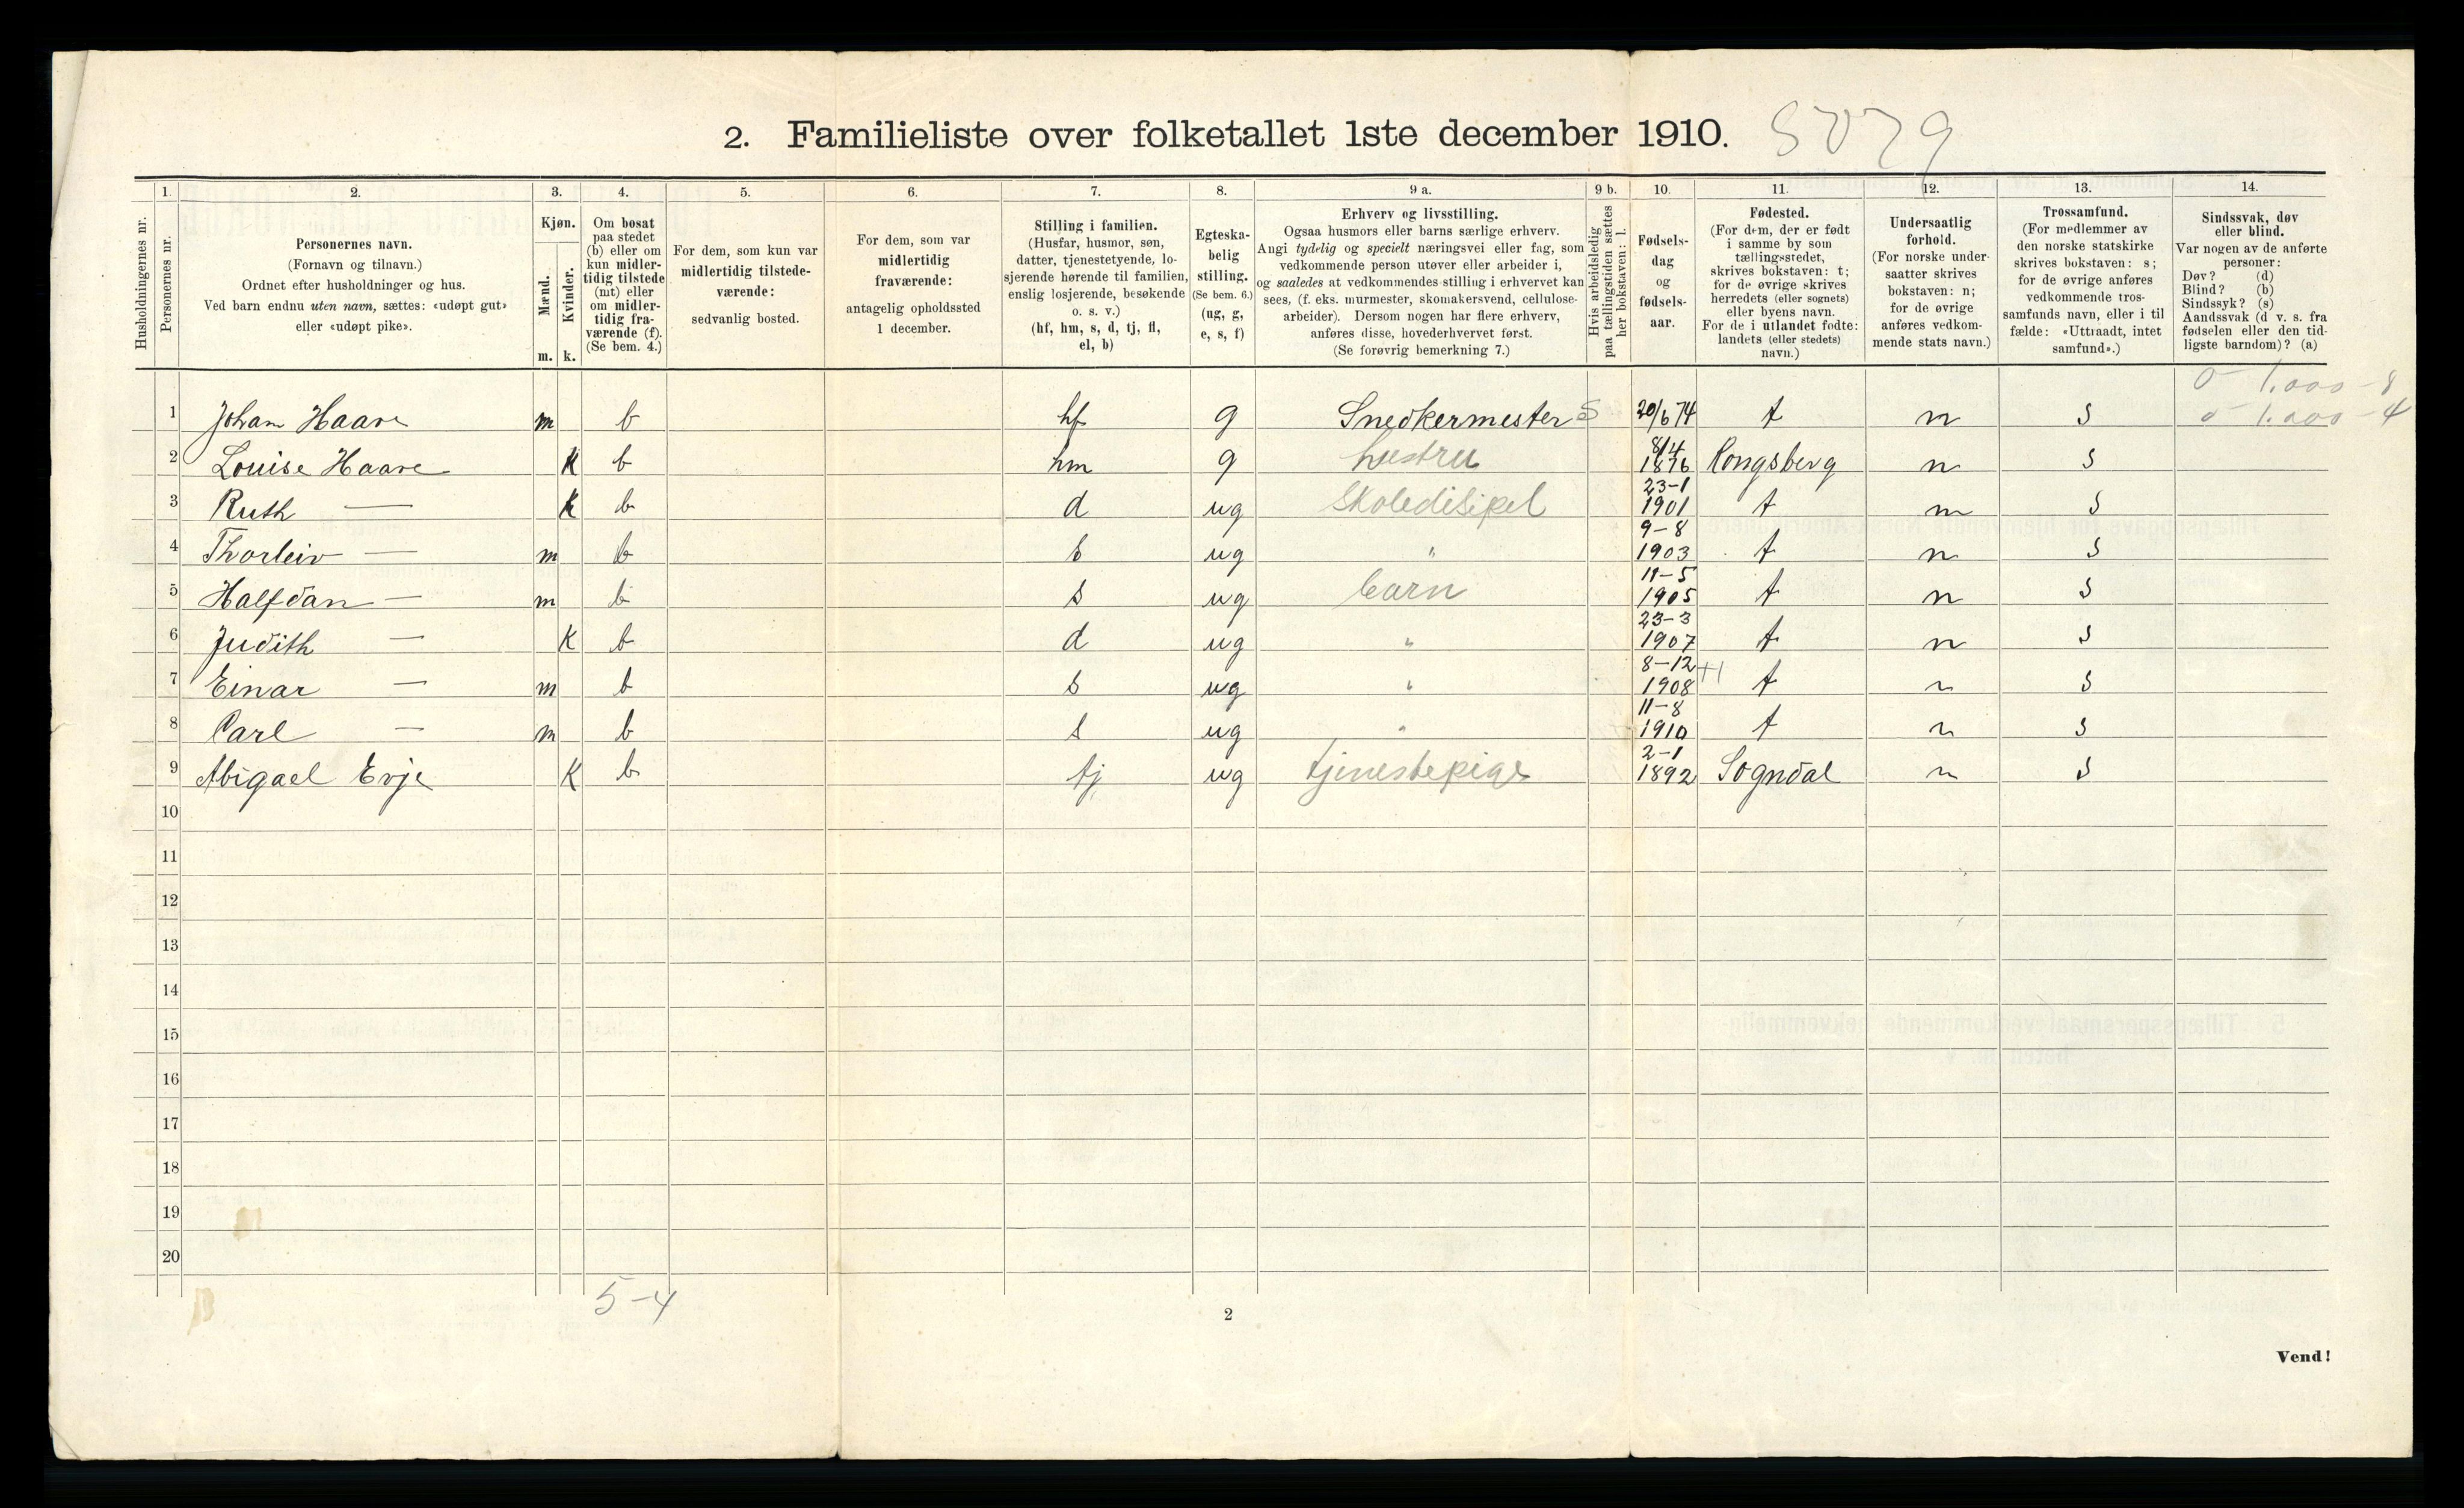 2. Familieliste over folketallet 1ste december 1910. 5079
Husholdningernes nr.
1. Personernes nr.
2. Personernes navn.
(Fornavn og tilnavn.)
Ordnet efter husholdninger og hus.
Ved barn endnu uten navn, sættes: «udøpt gut»
eller «udøpt pike».
3. Kjøn.
Mænd. Kvinder.
m. k.
4. Om bosat
paa stedet
(b) eller om
kun midler-
tidig tilstede
(mt) eller
om midler-
tidig fra-
værende (f).
(Se bem. 4.)
5. For dem, som kun var
midlertidig tilstede-
værende:
sedvanlig bosted.
6. For dem, som var
midlertidig
fraværende:
antagelig opholdssted
1 december.
7. Stilling i familien.
(Husfar, husmor, søn,
datter, tjenestetyende, lo-
sjerende hørende til familien,
enslig losjerende, besøkende
o. s. v.)
(hf, hm, s, d, tj, fl,
el, b)
8. Egteska-
belig
stilling.
(Se bem. 6.)
(ug, g,
e, s, f)
9 a. Erhverv og livsstilling.
Ogsaa husmors eller barns særlige erhverv.
Angi tydelig og specielt næringsvei eller fag, som
vedkommende person utøver eller arbeider i,
og saaledes at vedkommendes stilling i erhvervet kan
sees, (f. eks. murmester, skomakersvend, cellulose-
arbeider). Dersom nogen har flere erhverv,
anføres disse, hovederhvervet først.
(Se forøvrig bemerkning 7.)
9 b. Hvis arbeidsledig
paa tællingstiden sættes
her bokstaven: l.
10. Fødsels-
dag
og
fødsels-
aar.
11. Fødested.
(For dem, der er født
i samme by som
tællingsstedet,
skrives bokstaven: t;
for de øvrige skrives
herredets (eller sognets)
eller byens navn.
For de i utlandet fødte:
landets (eller stedets)
navn.)
12. Undersaatlig
forhold.
(For norske under-
saatter skrives
bokstaven: n;
for de øvrige
anføres vedkom-
mende stats navn.)
13. Trossamfund.
(For medlemmer av
den norske statskirke
skrives bokstaven: s;
for de øvrige anføres
vedkommende tros-
samfunds navn, eller i til
fælde: «Uttraadt, intet
samfund».)
14. Sindssvak, døv
eller blind.
Var nogen av de anførte
personer:
Døv? (d)
Blind? (b)
Sindssyk? (s)
Aandssvak (d v. s. fra
fødselen eller den tid-
ligste barndom)? (a)
0 1.000 - 8
1 Johan Haare m b hf g Snedkermester S 20/6 74 t n s 0 1.000 - 4
2 Louise Haare k b hm g hustru 8/4 1876 Kongsberg n s
3 Ruth — k b d ug Skoledisipel 23-1 1901 t n s
4 Thorleiv — m b s ug " 9-8 1903 t n s
5 Halfdan — m b s ug barn 11-5 1905 t n s
6 Judith — k b d ug " 23-3 1907 t n s
7 Einar — m b s ug " 8-12 1908 +1 t n s
8 Carl — m b s ug " 11-8 1910 t n s
9 Abigael Evje k b tj ug tjenestepige 2-1 1892 Sogndal n s
10
11
12
13
14
15
16
17
18
19
20
5-4
2
Vend!